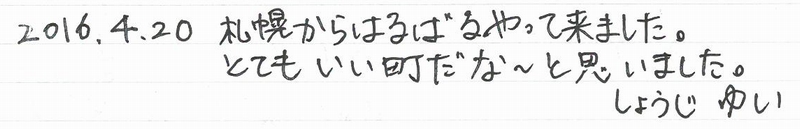 2016.4.20 札幌からはるばるやって来ました。
とてもいい町だな～と思いました。
しょうじ ゆい